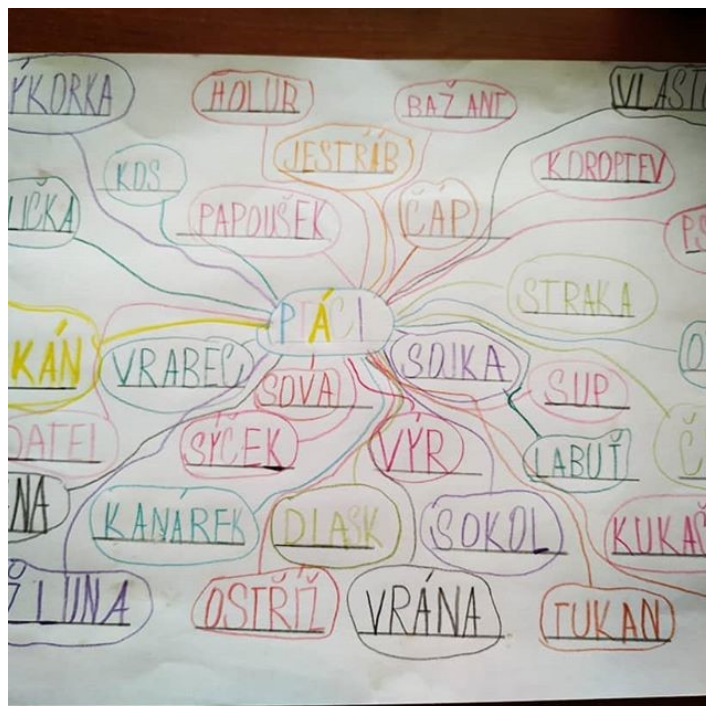 ÝKORKA
HOLUB
BAŽANT
VLAŠT
JESTŘÁB
KOS
KOROPTEV
LIČKA
PAPOUŠEK
ČÁP
STRAKA
PTÁCI
KÁN
VRABEC
SOJKA
SOVA
SUP
DATEL
SÝČEK
VÝR
LABUŤ
NA
KANÁREK
DLASK
SOKOL
ŽLUNA
OSTŘÍŽ
VRÁNA
TUKAN